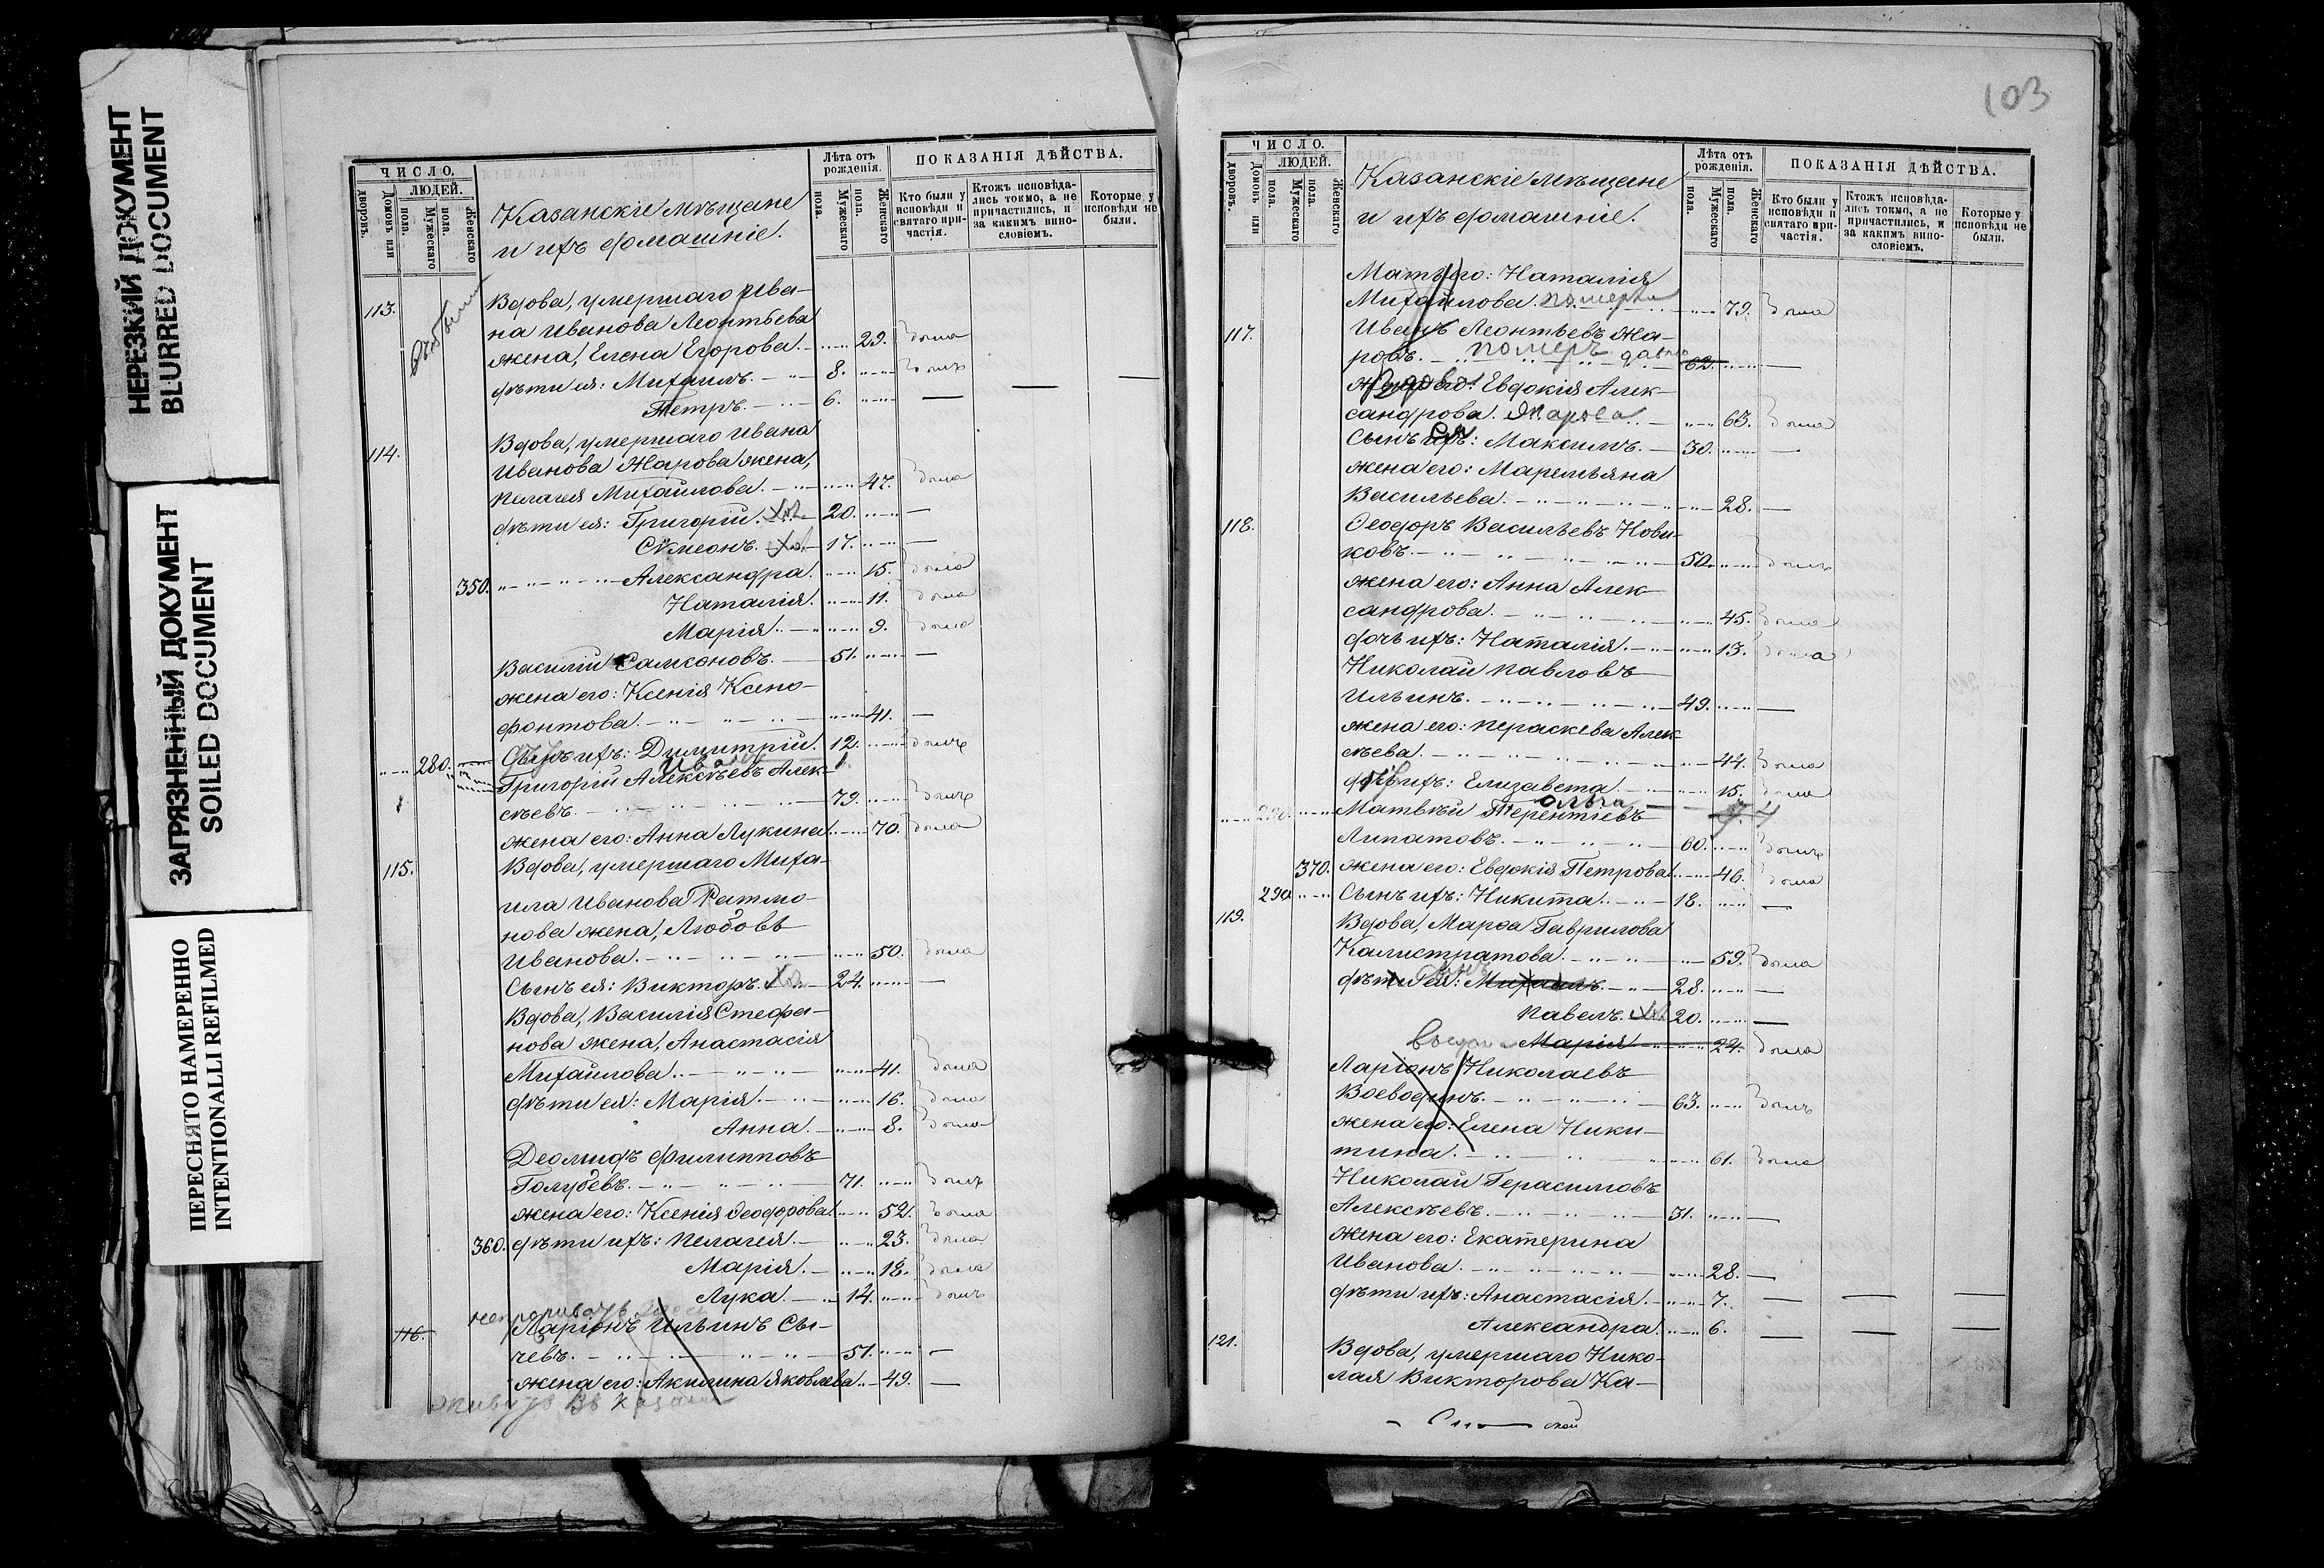 НЕРЕЗКИЙ ДОКУМЕНТ
BLURRED DOCUMENT
ЗАГРЯЗНЕННЫЙ ДОКУМЕНТ
SOILED DOCUMENT
ПЕРЕСНЯТО НАМЕРЕННО
INTENTIONALLI REFILMED
ЧИСЛО.
ЛЮДЕЙ.
Домовъ или дворовъ.
Мужескаго пола.
Женскаго пола.
Казанскіе мѣщане
и ихъ домашніе.
Лѣта отъ рожденія.
Мужескаго пола.
Женскаго пола.
ПОКАЗАНІЯ ДѢЙСТВА.
Кто были у исповѣди и святаго причастія.
Ктожъ исповѣдались токмо, а не причастились, и за какимъ винословіемъ.
Которые у исповѣди не были.
113. Вдова, умершаго Ива-
на Иванова Леонтьева
жена, Елена Егорова. 29. была
дѣти ея: Михаилъ. 8. былъ
Петръ. 6. —
114. Вдова, умершаго Ивана
Иванова Жарова жена,
Пелагея Михаилова. 47. была
дѣти ея: Григорій. хол. 20. —
Симеонъ. хол. 17. —
350. Александра. 15. была
Наталія. 11. была
Марія. 9. была
Василій Самсоновъ. 51. —
жена его: Ксенія Ксено-
фонтова. 41. —
280. Сынъ ихъ: Димитрій. 12. былъ
Иванъ 1.
Григорій Алексѣевъ Алек-
сѣевъ. 79. былъ
жена его: Анна Лукина. 70. была
115. Вдова, умершаго Миха-
ила Иванова Ратмо-
нова жена, Любовь
Иванова. 50. была
Сынъ ея: Викторъ. хол. 24. —
Вдова, Василія Стефа-
нова жена, Анастасія
Михаилова. 41. была
дѣти ея: Марія. 16. была
Анна. 8. была
Деомидъ Филипповъ
Голубевъ. 71. былъ
жена его: Ксенія Ѳеодорова. 52. была
360. дѣти ихъ: Пелагея. 23. была
Марія. 18. была
Лука. 14. былъ
116. Ларіонъ Ильинъ Сы-
чевъ. 51. —
жена его: Акилина Яковлева. 49. —
живутъ въ Казани
103
ЧИСЛО.
ЛЮДЕЙ.
Домовъ или дворовъ.
Мужескаго пола.
Женскаго пола.
Казанскіе мѣщане
и ихъ домашніе.
Лѣта отъ рожденія.
Мужескаго пола.
Женскаго пола.
ПОКАЗАНІЯ ДѢЙСТВА.
Кто были у исповѣди и святаго причастія.
Ктожъ исповѣдались токмо, а не причастились, и за какимъ винословіемъ.
Которые у исповѣди не были.
Мать его: Наталія
Михайлова. померла 79. была
117. Иванъ Леонтьевъ Жа-
ровъ. померъ давно 62. —
вдова Евдокія Алек-
сандрова. Жарова 63. была
Сынъ ея: Максимъ. 30. —
жена его: Маремьяна
Васильева. 28. —
118. Ѳеодоръ Васильевъ Нови-
ковъ. 50. былъ
жена его: Анна Алек-
сандрова. 45. была
дочь ихъ: Наталія. 13. была
Николай Павловъ
Ильинъ. 49. —
жена его: Пераскева Алек-
сѣева. 44. была
дочь ихъ: Елизавета. 15. была
Ольга 4
Матвѣй Терентіевъ
Липатовъ. 60. былъ
370. жена его: Евдокія Петрова. 46. была
290. Сынъ ихъ: Никита. 18. —
119. Вдова, Марѳа Гаврилова
Калистратова. 59. была
дѣти ея: Михаилъ. 28. —
Павелъ. хол. 20. —
Марія 22. была
Ларіонъ Николаевъ
Воеводинъ. 63. былъ
жена его: Елена Ники-
тина. 61. была
Николай Герасимовъ
Алексѣевъ. 31. —
жена его: Екатерина
Иванова. 28. —
дѣти ихъ: Анастасія. 7. — — —
Александра. 6. — — —
121. Вдова, умершаго Нико-
лая Викторова Ка-